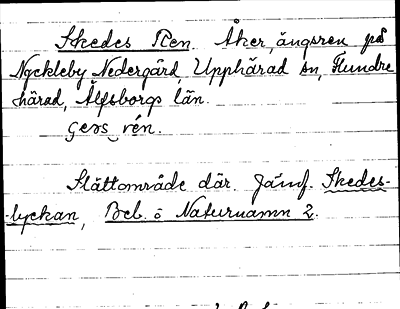 Skedes Ren. Åker, ängsren på
Nyckleby Nedergård, Upphärad sn, Flundre
härad, Älfsborgs län.
rén.
Slättområde där. Jämf. Skedes-
-lyckan, Beb. o Naturnamn 2.